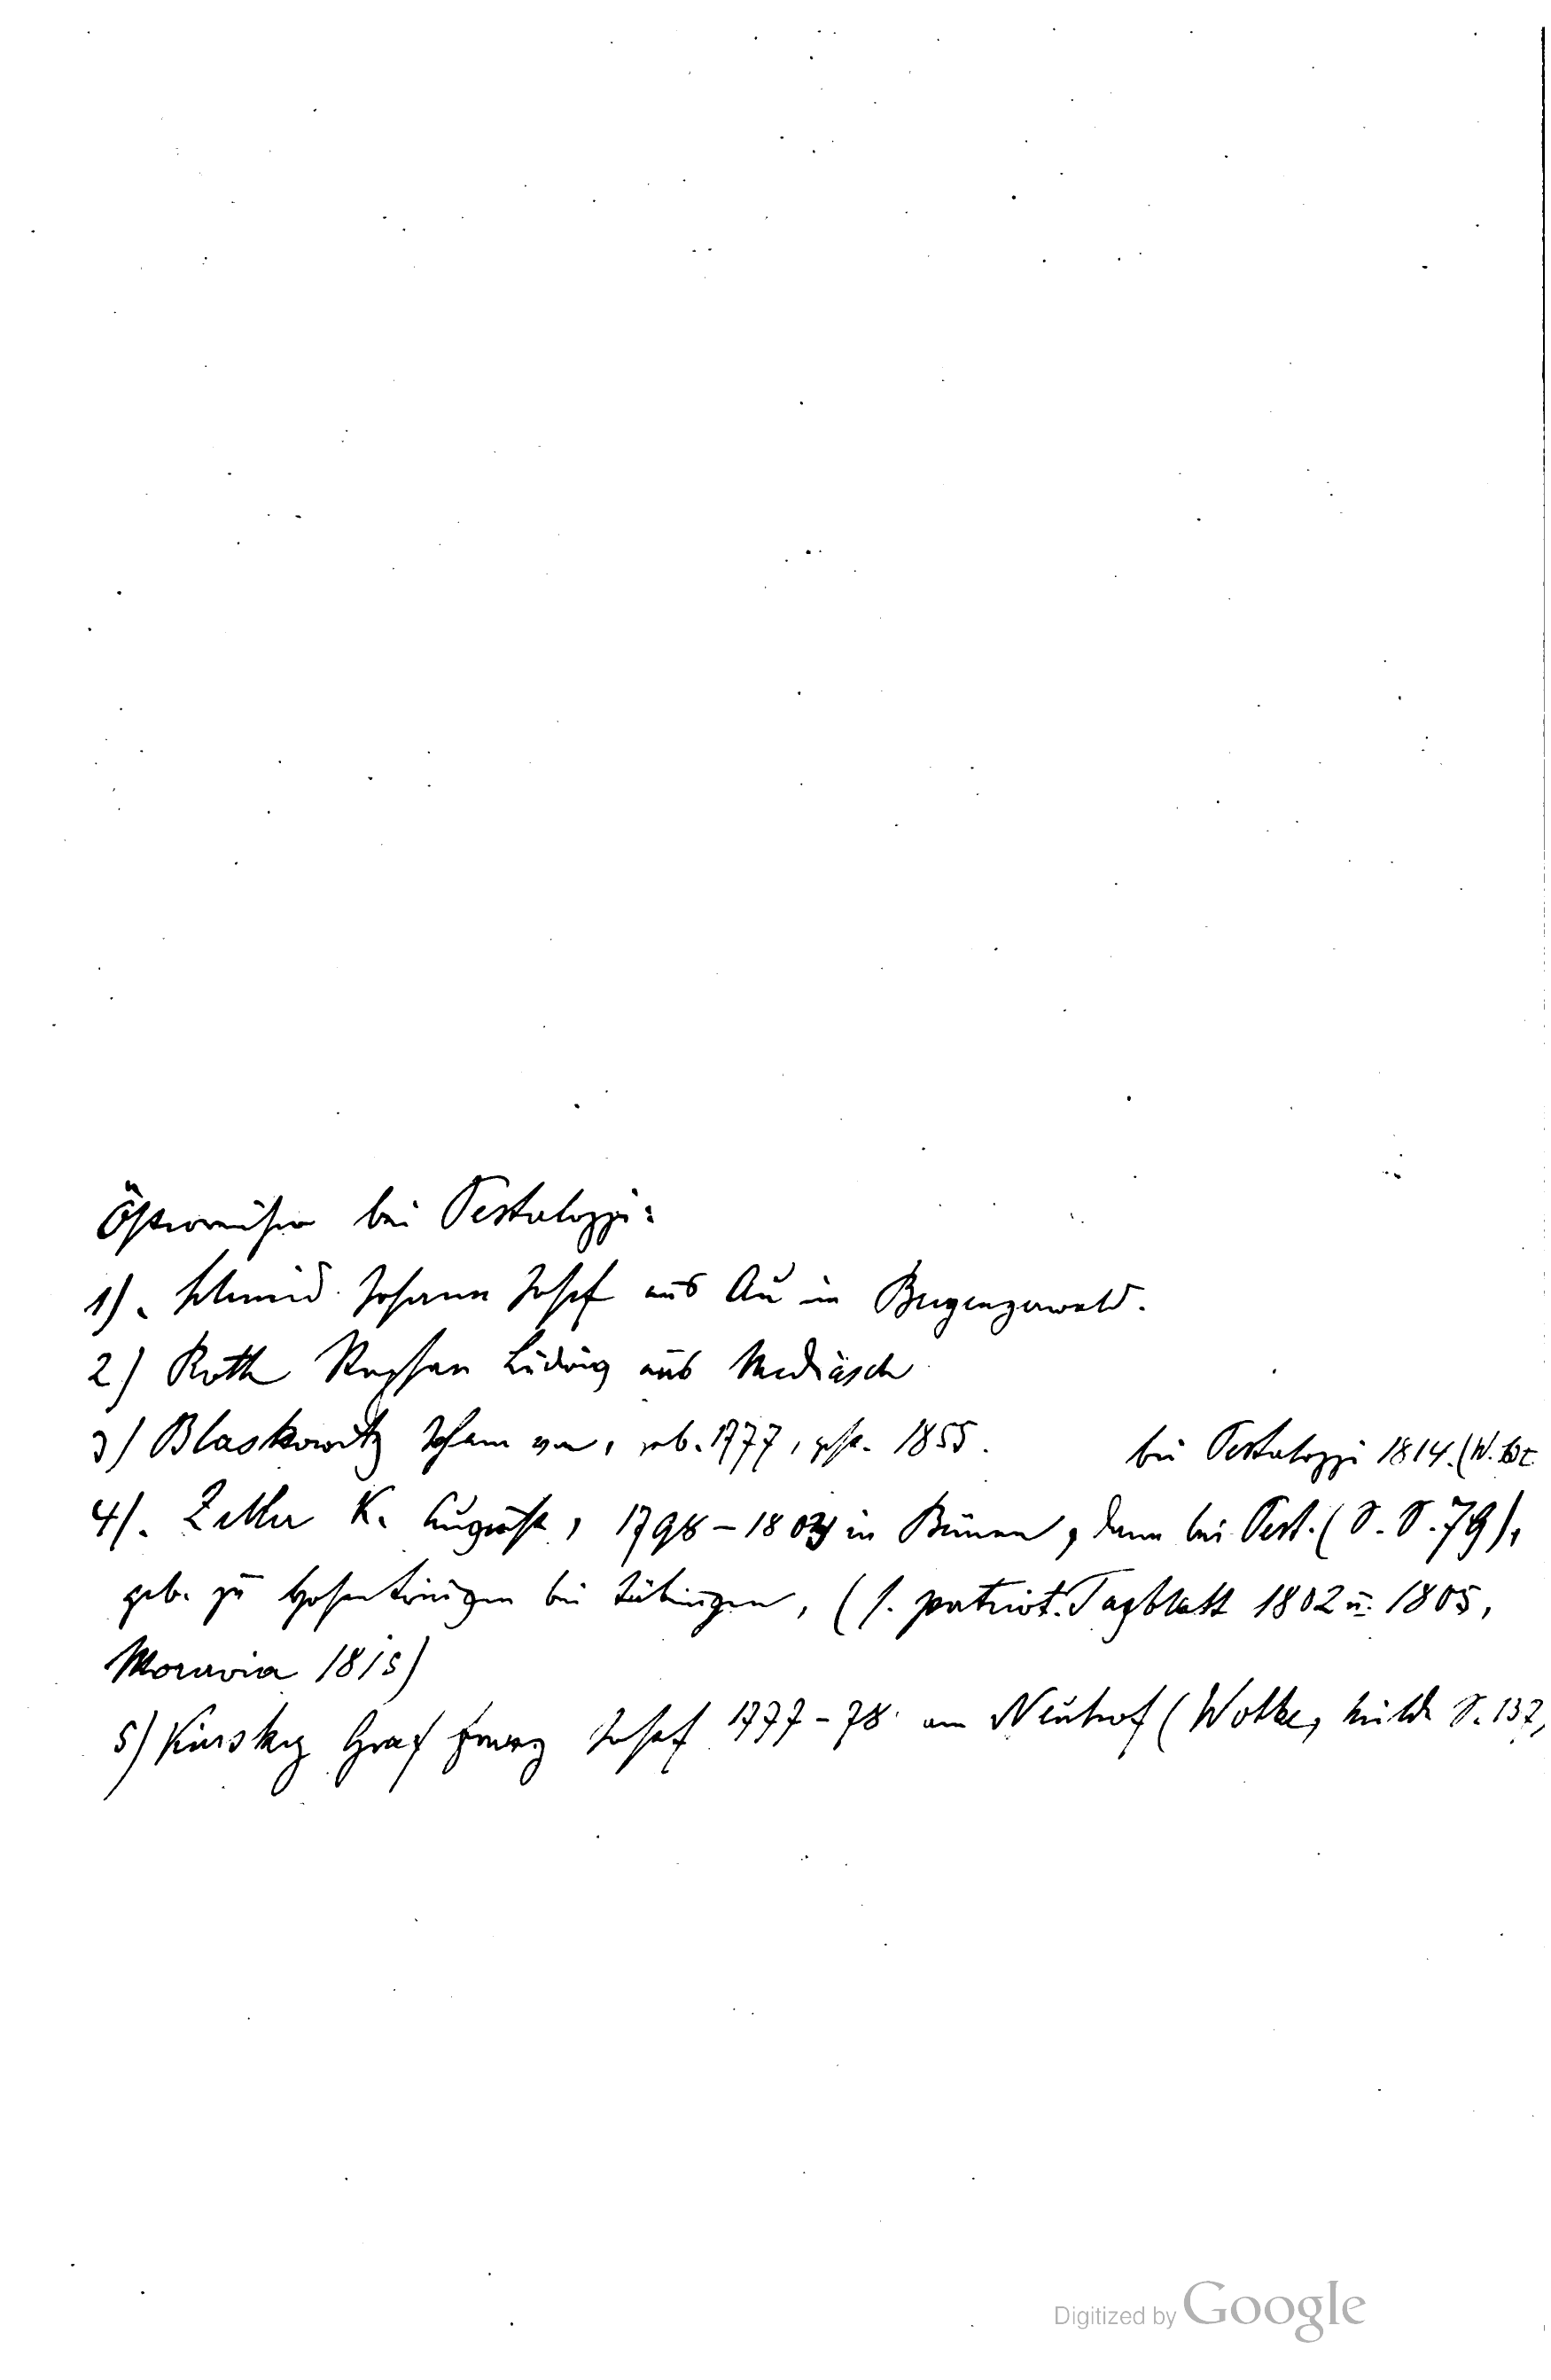 Österreicher bei Pestalozzi:
1). Schmid Johann Josef aus Au im Bregenzerwald.
2) Roth Stephan Ludwig aus Mediasch
3) Blaskowitz Johann von, geb. 1777, gest. 1855. bei Pestalozzi 1814. (W.
4). Zeller K. August, 1798 – 1803 in Brünn, dann bei Pest. (S. S. 79),
geb. zu Hohenentringen bei Tübingen, (s. patriot. Tagblatt 1802 u. 1805,
Moravia 1815)
5) Kinsky Graf Franz Josef 1777 – 78 am Neuhof (Wotke, S. 137,
Digitized by Google